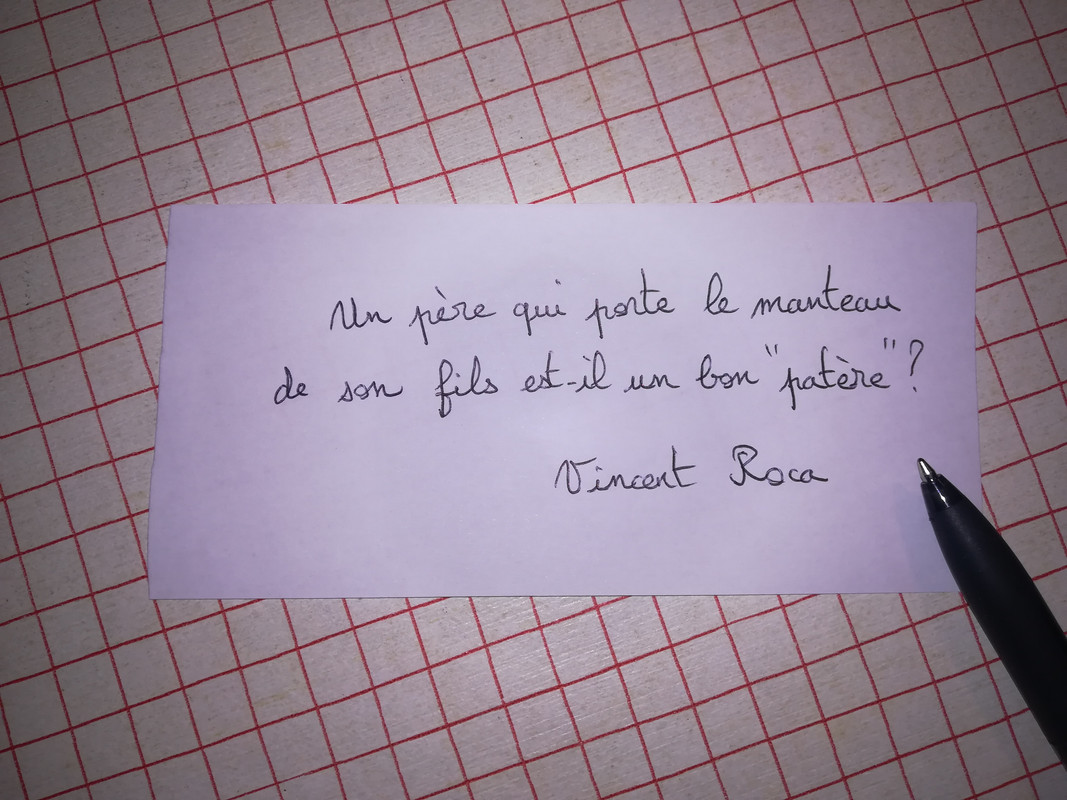 Un père qui porte le manteau
de son fils est-il un bon "patère"?
Vincent Roca